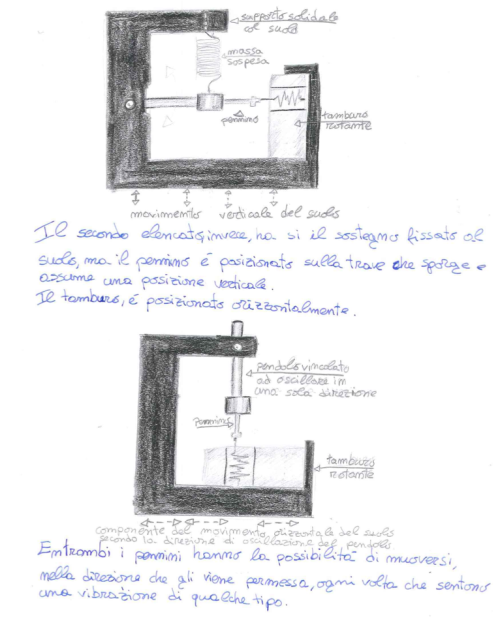 supporto solidale
col suolo
massa
sospesa
pennino
tamburo
rotante
movimento verticale del suolo
Il secondo elencato, invece, ha sì il sostegno fissato al
suolo, ma il pennino é posizionato sulla trave che sporge e
assume una posizione verticale.
Il tamburo, é posizionato orizzontalmente.
pendolo vincolato
ad oscillare in
una sola direzione
pennino
tamburo
rotante
componente del movimento orizzontale del suolo
secondo la direzione di oscillazione del pendolo
Entrambi i pennini hanno la possibilitá di muoversi,
nella direzione che gli viene permessa, ogni volta che sentono
una vibrazione di qualche tipo.